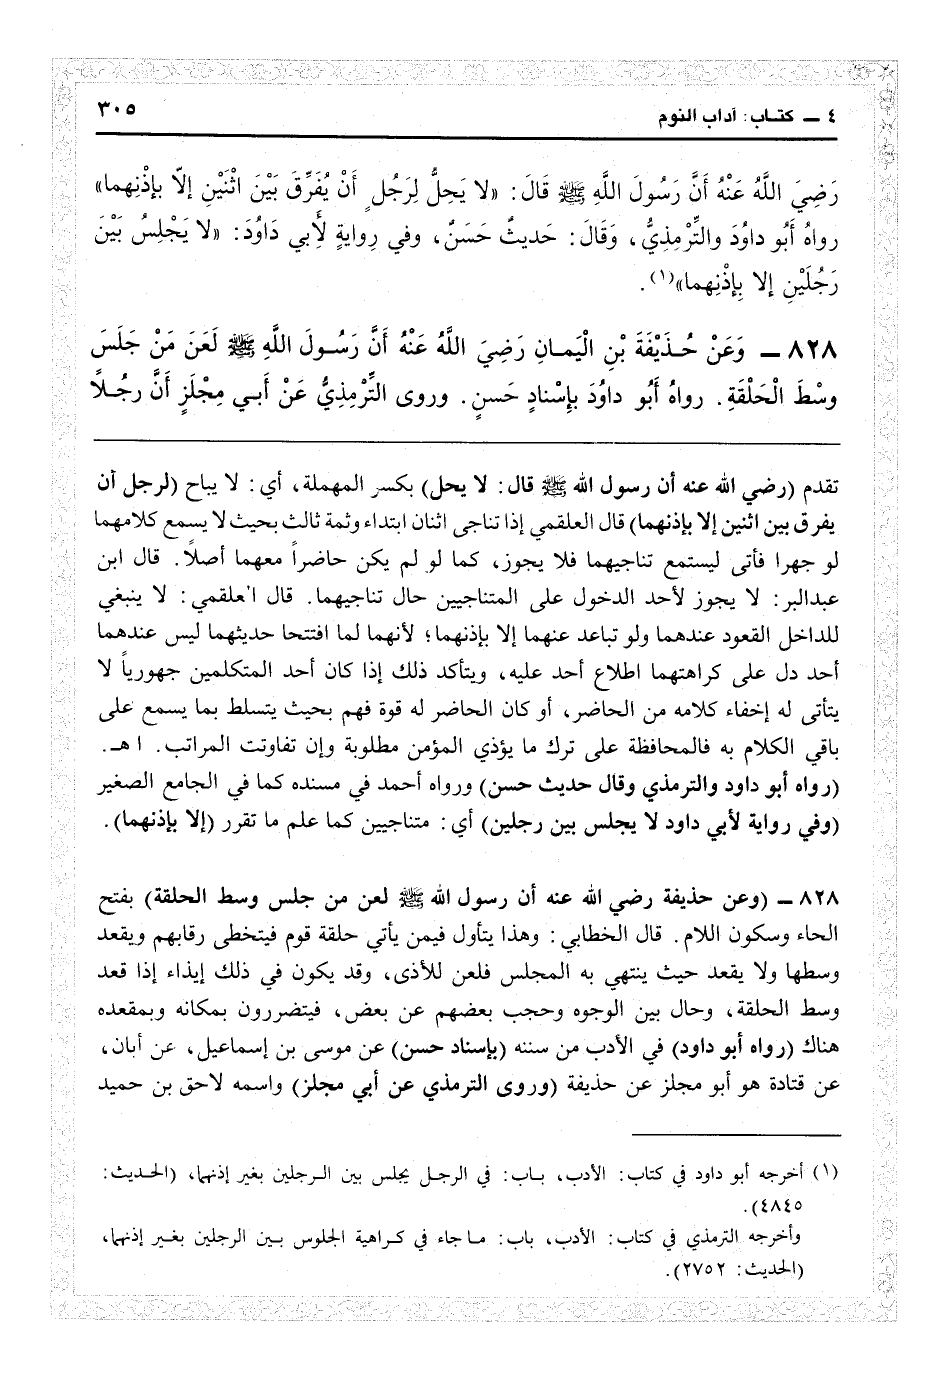 ٤ ــ كتـاب: آداب النوم
٣٠٥
رَضِيَ اللَّهُ عَنْهُ أَنَّ رَسُولَ اللَّهِ ﷺ قَالَ: «لا يَحِلُّ لِرَجُلٍ أَنْ يُفَرِّقَ بَيْنَ اثْنَيْنِ إلّا بإذْنِهما»
رواهُ أَبُو داوُدَ والتِّرْمِذِيُّ، وَقَالَ: حَديثٌ حَسَنٌ، وفي رِوايةٍ لِأَبي دَاوُدَ: «لا يَجْلِسُ بَيْنَ
رَجُلَيْنِ إلا بِإذْنِهما»(١).
٨٢٨ ــ وَعَنْ حُـذَيْفَةَ بْنِ الْيَمـانِ رَضِيَ اللَّهُ عَنْهُ أَنَّ رَسُـولَ اللَّهِ ﷺ لَعَنَ مَنْ جَلَسَ
وسْطَ الْحَلْقَةِ. رواهُ أَبُو داوُدَ بإسْنادٍ حَسنٍ. وروى التِّرْمِذِيُّ عَنْ أبـي مِجْلَزٍ أَنَّ رجُـلاً
تقدم (رضي الله عنه أن رسول الله ﷺ قال: لا يحل) بكسر المهملة، أي: لا يباح (لرجل أن
يفرق بين اثنين إلا بإذنهما) قال العلقمي إذا تناجى اثنان ابتداء وثمة ثالث بحيث لا يسمع كلامهما
لو جهرا فأتى ليستمع تناجيهما فلا يجوز، كما لو لم يكن حاضراً معهما أصلاً. قال ابن
عبدالبر: لا يجوز لأحد الدخول على المتناجيين حال تناجيهما. قال العلقمي: لا ينبغي
للداخل القعود عندهما ولو تباعد عنهما إلا بإذنهما؛ لأنهما لما افتتحا حديثهما ليس عندهما
أحد دل على كراهتهما اطلاع أحد عليه، ويتأكد ذلك إذا كان أحد المتكلمين جهورياً لا
يتأتى له إخفاء كلامه من الحاضر، أو كان الحاضر له قوة فهم بحيث يتسلط بما يسمع على
باقي الكلام به فالمحافظة على ترك ما يؤذي المؤمن مطلوبة وإن تفاوتت المراتب. ا هـ.
(رواه أبو داود والترمذي وقال حديث حسن) ورواه أحمد في مسنده كما في الجامع الصغير
(وفي رواية لأبي داود لا يجلس بين رجلين) أي: متناجيين كما علم ما تقرر (إلا بإذنهما).
٨٢٨ ــ (وعن حذيفة رضي الله عنه أن رسول الله ﷺ لعن من جلس وسط الحلقة) بفتح
الحاء وسكون اللام. قال الخطابي: وهذا يتأول فيمن يأتي حلقة قوم فيتخطى رقابهم ويقعد
وسطها ولا يقعد حيث ينتهي به المجلس فلعن للأذى، وقد يكون في ذلك إيذاء إذا قعد
وسط الحلقة، وحال بين الوجوه وحجب بعضهم عن بعض، فيتضررون بمكانه وبمقعده
هناك (رواه أبو داود) في الأدب من سننه (بإسناد حسن) عن موسى بن إسماعيل، عن أبان،
عن قتادة هو أبو مجلز عن حذيفة (وروى الترمذي عن أبي مجلز) واسمه لاحق بن حميد
(١) أخرجه أبو داود في كتاب: الأدب، بـاب: في الرجـل يجلس بين الـرجلين بغير إذنهما، (الحـديث:
٤٨٤٥).
وأخرجه الترمذي في كتاب: الأدب، باب: مـا جاء في كـراهية الجلوس بـين الرجلين بغـير إذنهما،
(الحديث: ٢٧٥٢).